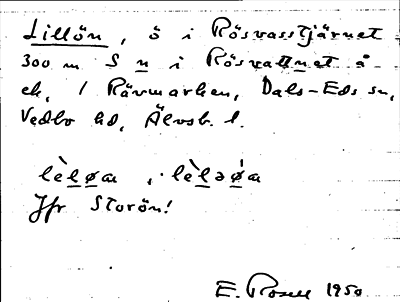 Lillön, ö i Rösvasstjärnet
300 m S n i Rösvattnet å
ek, / Rävmarken, Dals-Eds sn,
Vedbo hd, Älvsb. l.
lèløa, lèləǿa
Jfr Storön!
E. Rosell 1950